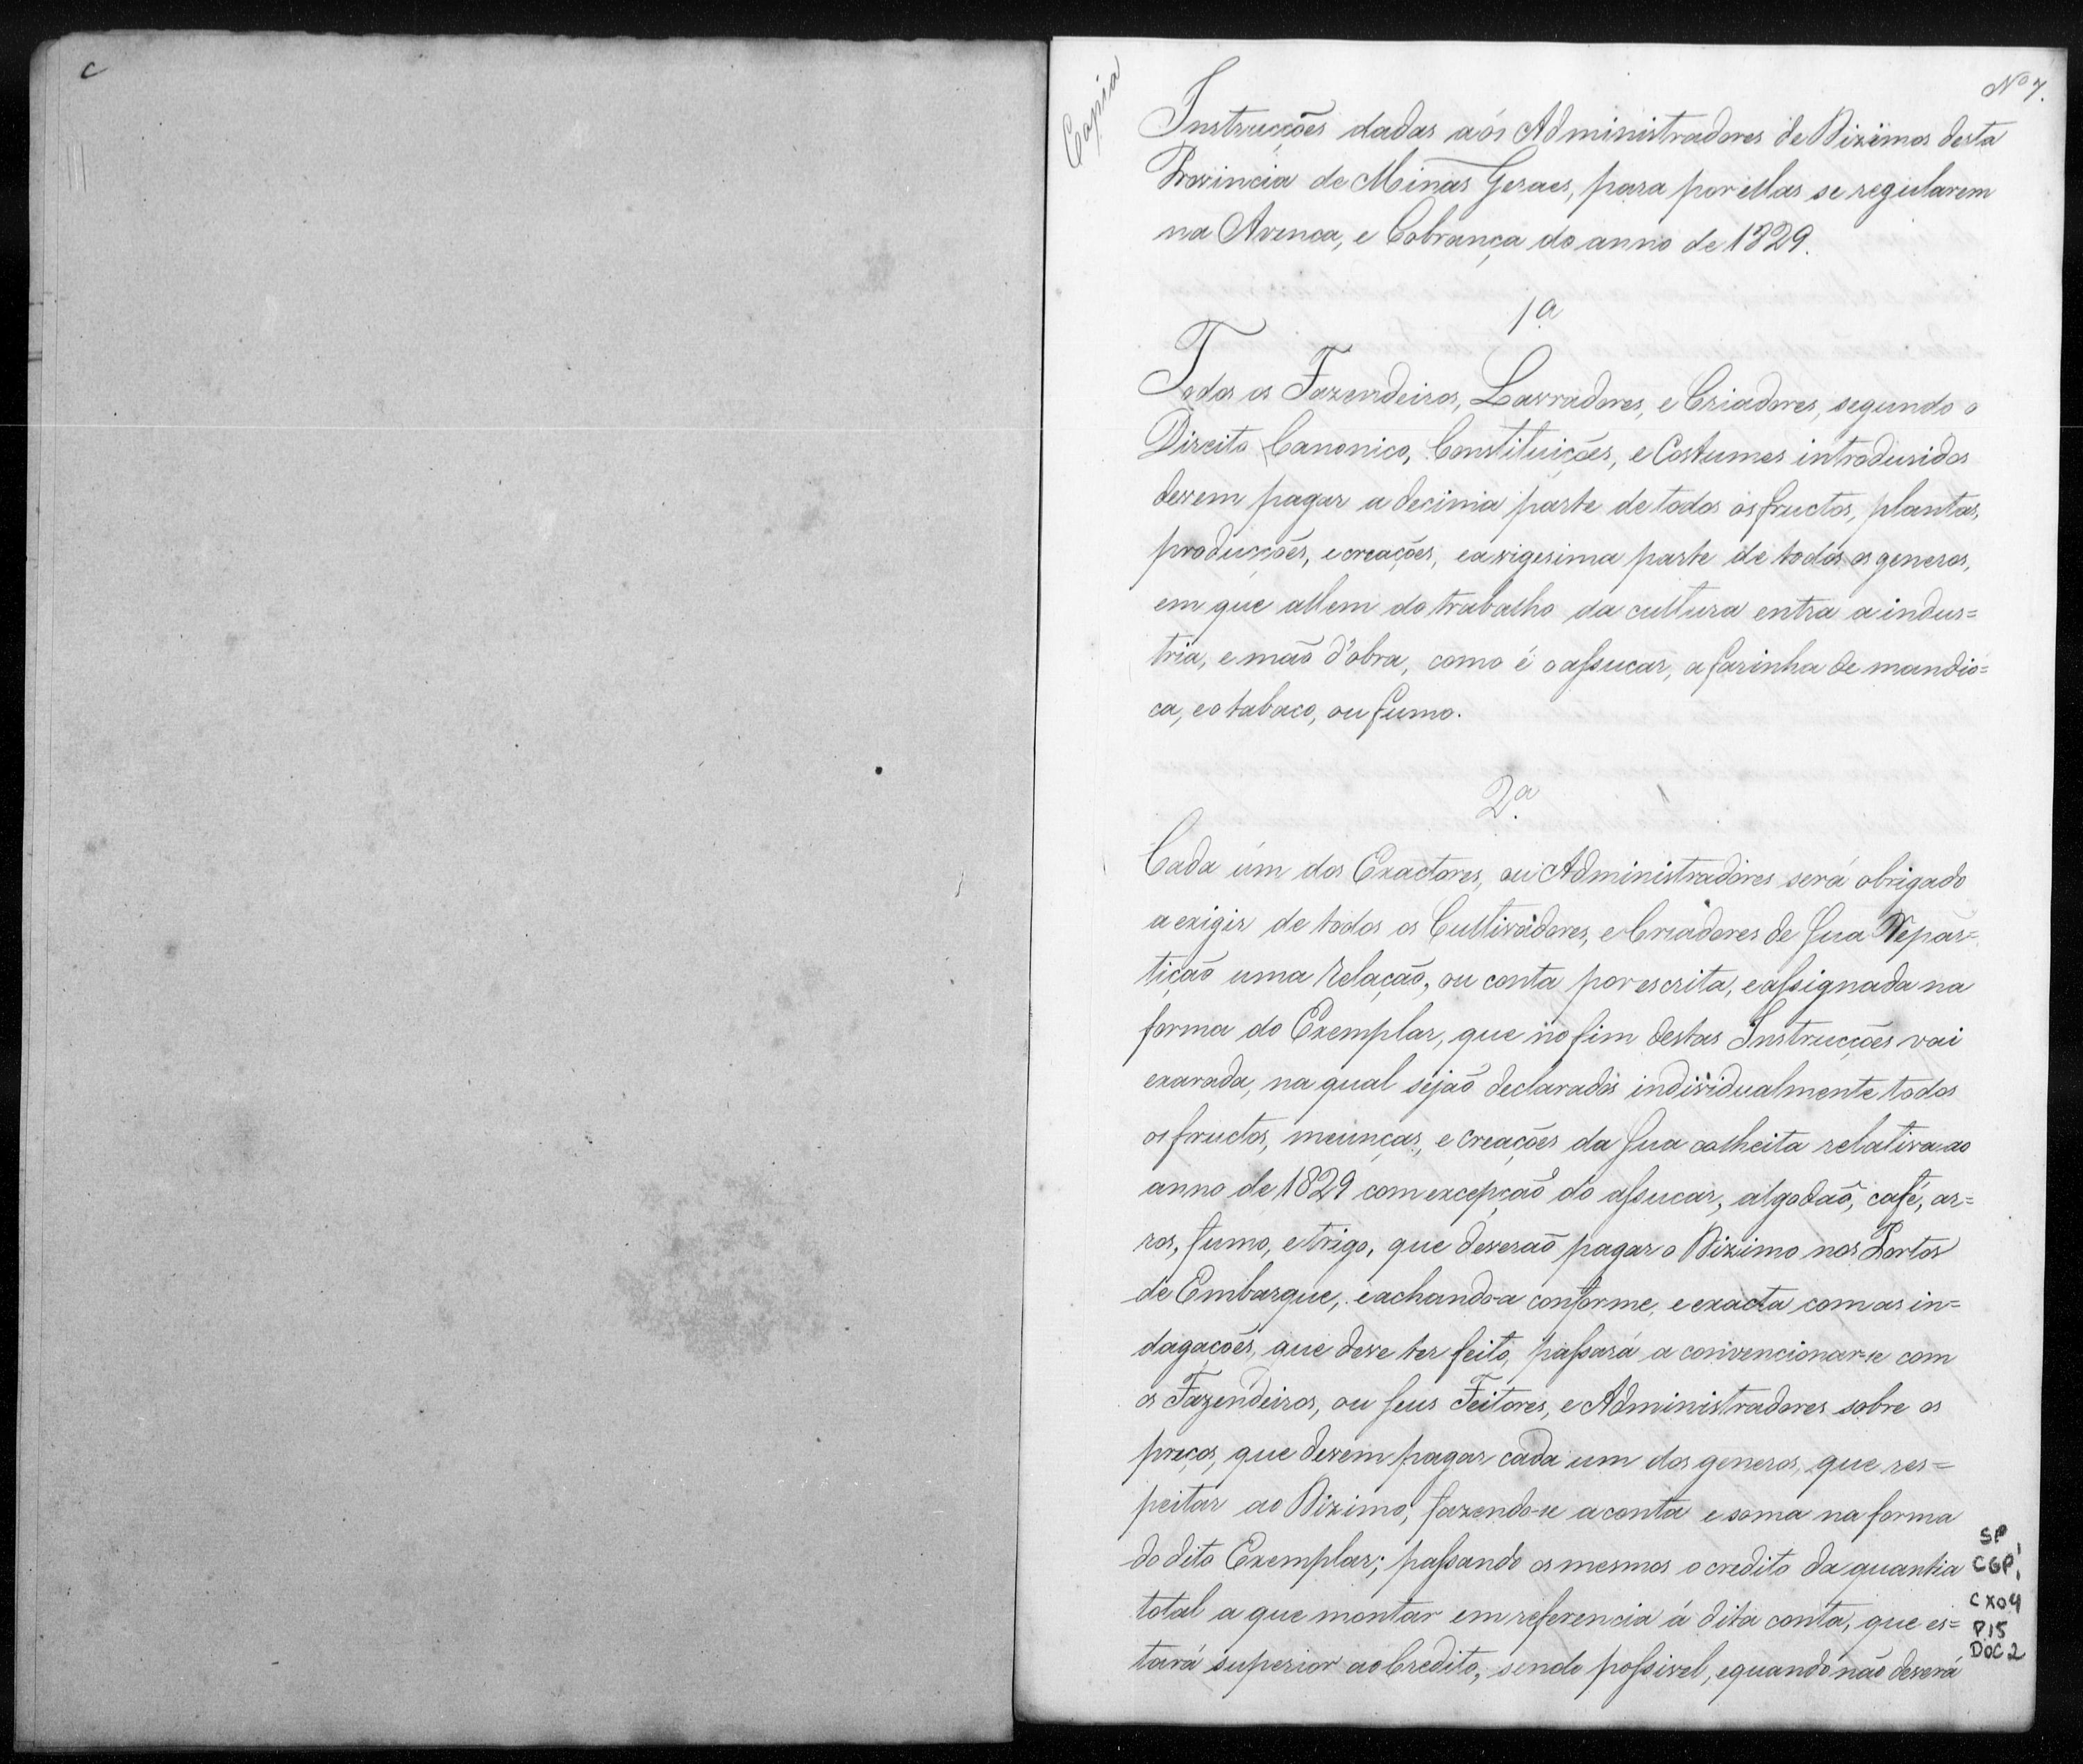 C
Copia
Nº 7.
Instrucções dadas aós Administradores de Dizimos desta
Provincia de Minas Geraes, para por ellas se regularem
na Avenca, e Cobrança do anno de 1829.
1ª
Todos os Fazendeiros, Lavradores, e Criadores, segundo o
Direito Canonico, Constituições, e Costumes introdusidos
devem pagar a decima parte de todos os fructos, plantas,
producções, e creações, e a vigesima parte de todos os generos,
em que allem do trabalho da cultura entra a indus=
tria, e mão d'obra, como é o assucar, a farinha de mandio=
ca, e o tabaco, ou fumo.
2ª
Cada úm dos Exactores, ou Administradores será obrigado
a exigir de todos os Cultivadores, e Criadores de sua Repar=
tição uma relação, ou conta por escrita, e assignada na
forma do Exemplar, que no fim destas Instrucções vai
exarada, na qual sejão declarados individualmente todos
os fructos, meunças, e creações da sua colheita relativa ao
anno de 1829 com excepção do assucar, algodão, café, ar=
ros, fumo, e trigo, que deverão pagar o Dizimo nos Portos
de Embarque, e achando-a conforme, e exacta com as in=
dagações, que deve ter feito, passará a convencionar-se com
os Fazendeiros, ou seus Feitores, e Administradores sobre os
preços, que devem pagar cada um dos generos, que res=
peitar ao Dizimo, fazendo-se a conta e soma na forma
do dito Exemplar; passando os mesmos o credito da quantia
total a que montar em referencia á dita conta, que es=
tará superior ao Credito, sendo possivel, e quando não deverá
SP
CGP1
CX04
P15
DOC 2